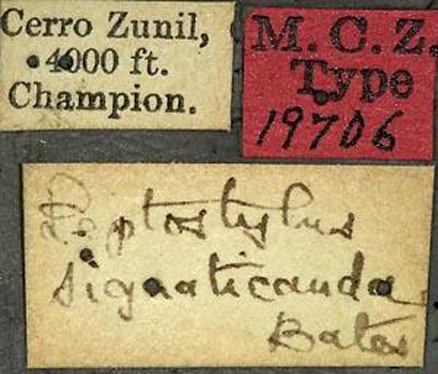 Cerro Zunil,
4000 ft.
Champion.
M. C. Z.
Type
19706
Leptostylus
signaticauda
Bates